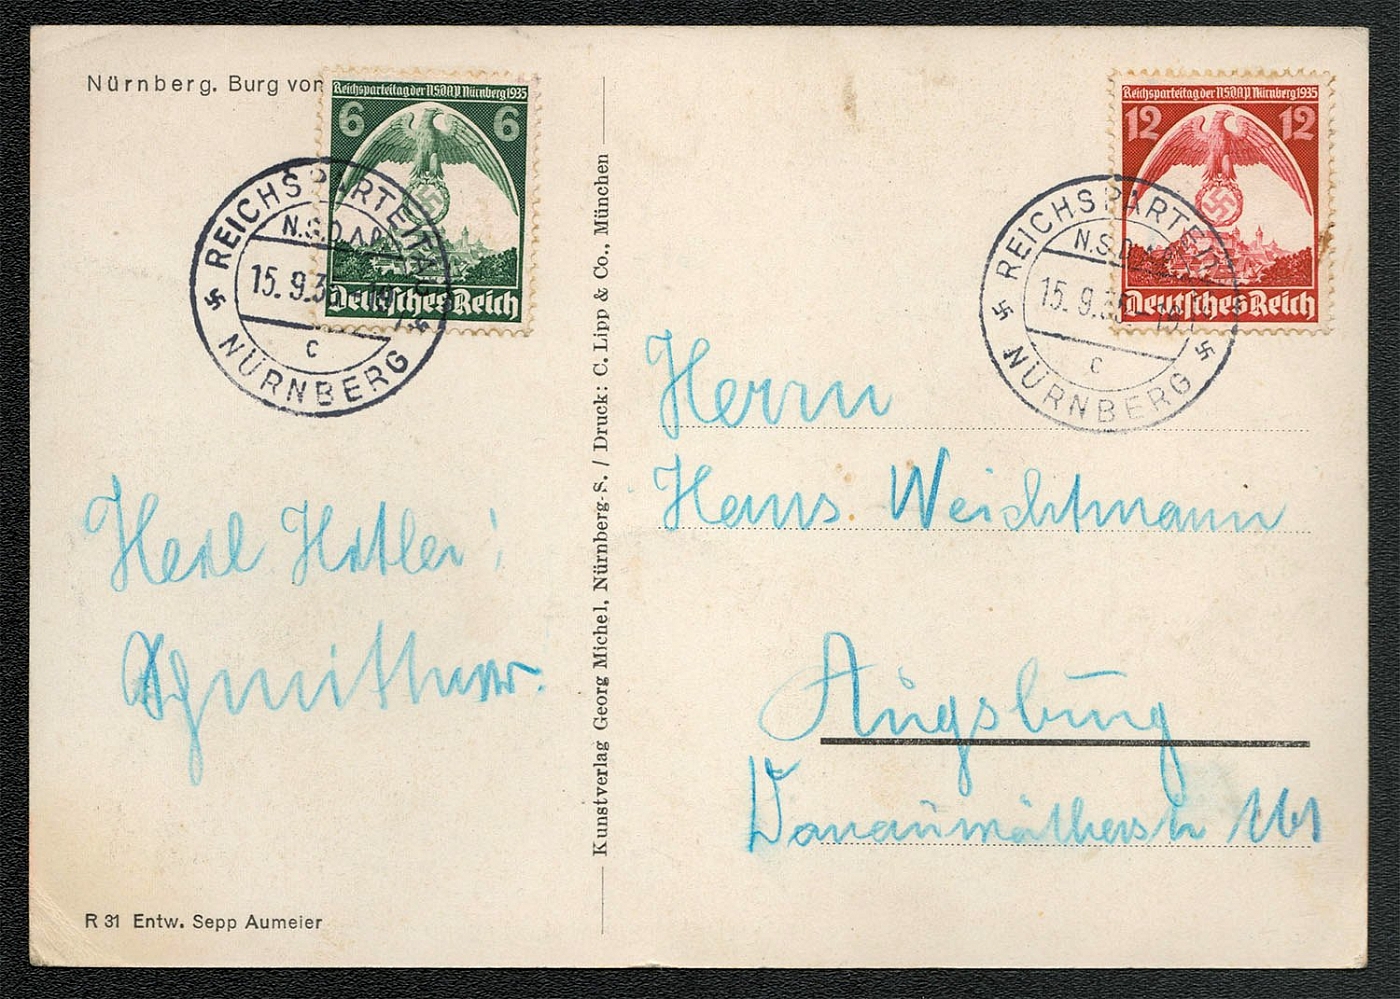 Nürnberg. Burg von
Reichsparteitag der NSDAP Nürnberg 1935
6 6
Deutsches Reich
REICHSPARTEITAG
N.S.D.A.P.
15.9.35
c
NÜRNBERG
Heil Hitler!
R 31 Entw. Sepp Aumeier
Kunstverlag Georg Michel, Nürnberg-S. / Druck: C. Lipp & Co., München
Reichsparteitag der NSDAP Nürnberg 1935
12 12
Deutsches Reich
REICHSPARTEITAG
N.S.D.A.P.
15.9.35
c
NÜRNBERG
Herrn
Hans Weichtmann
Augsburg